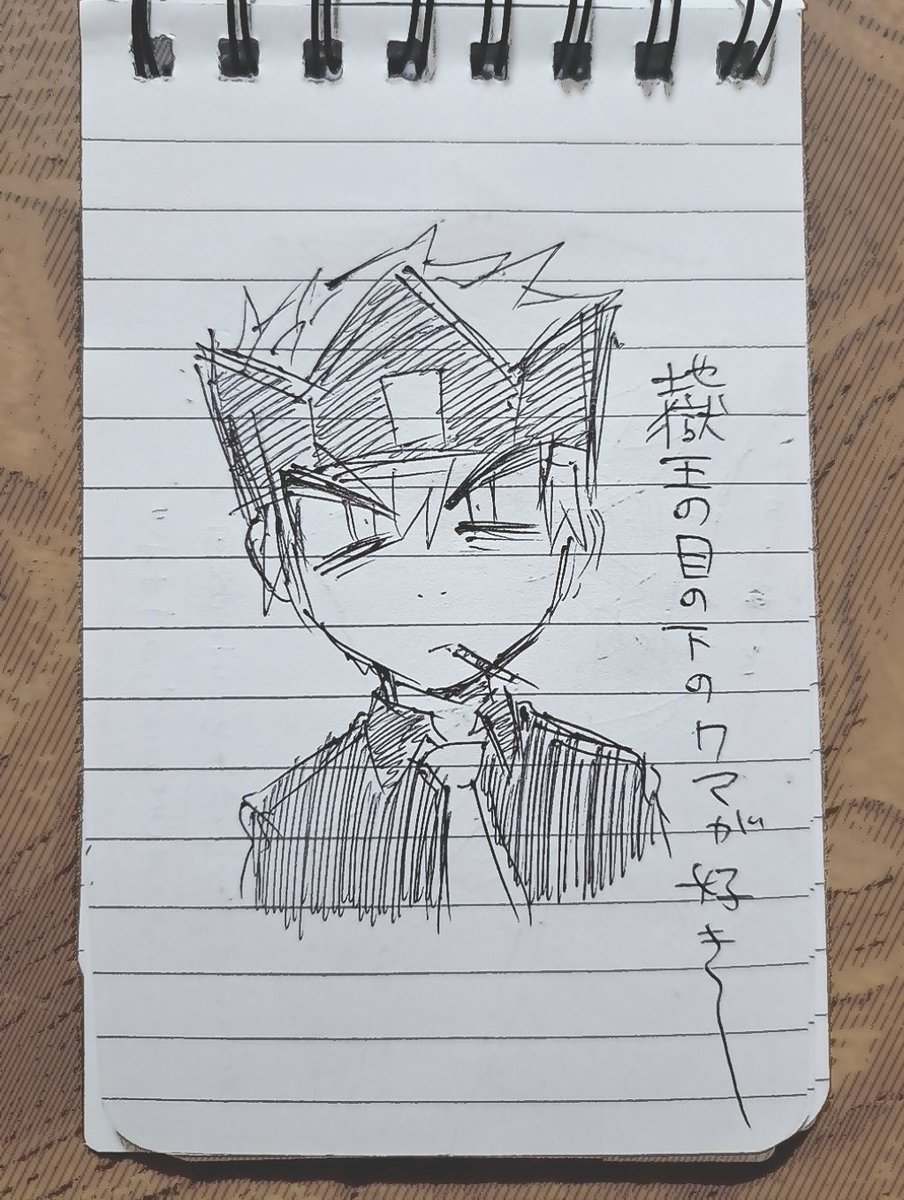 地獄王の目の下のクマが好きー